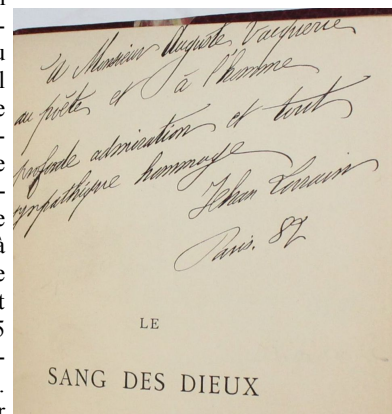 A Monsieur Auguste Vacquerie
au poète et à l'homme
profonde admiration et tout
sympathique hommage
Jehan Lorrain
Paris. 87
LE
SANG DES DIEUX